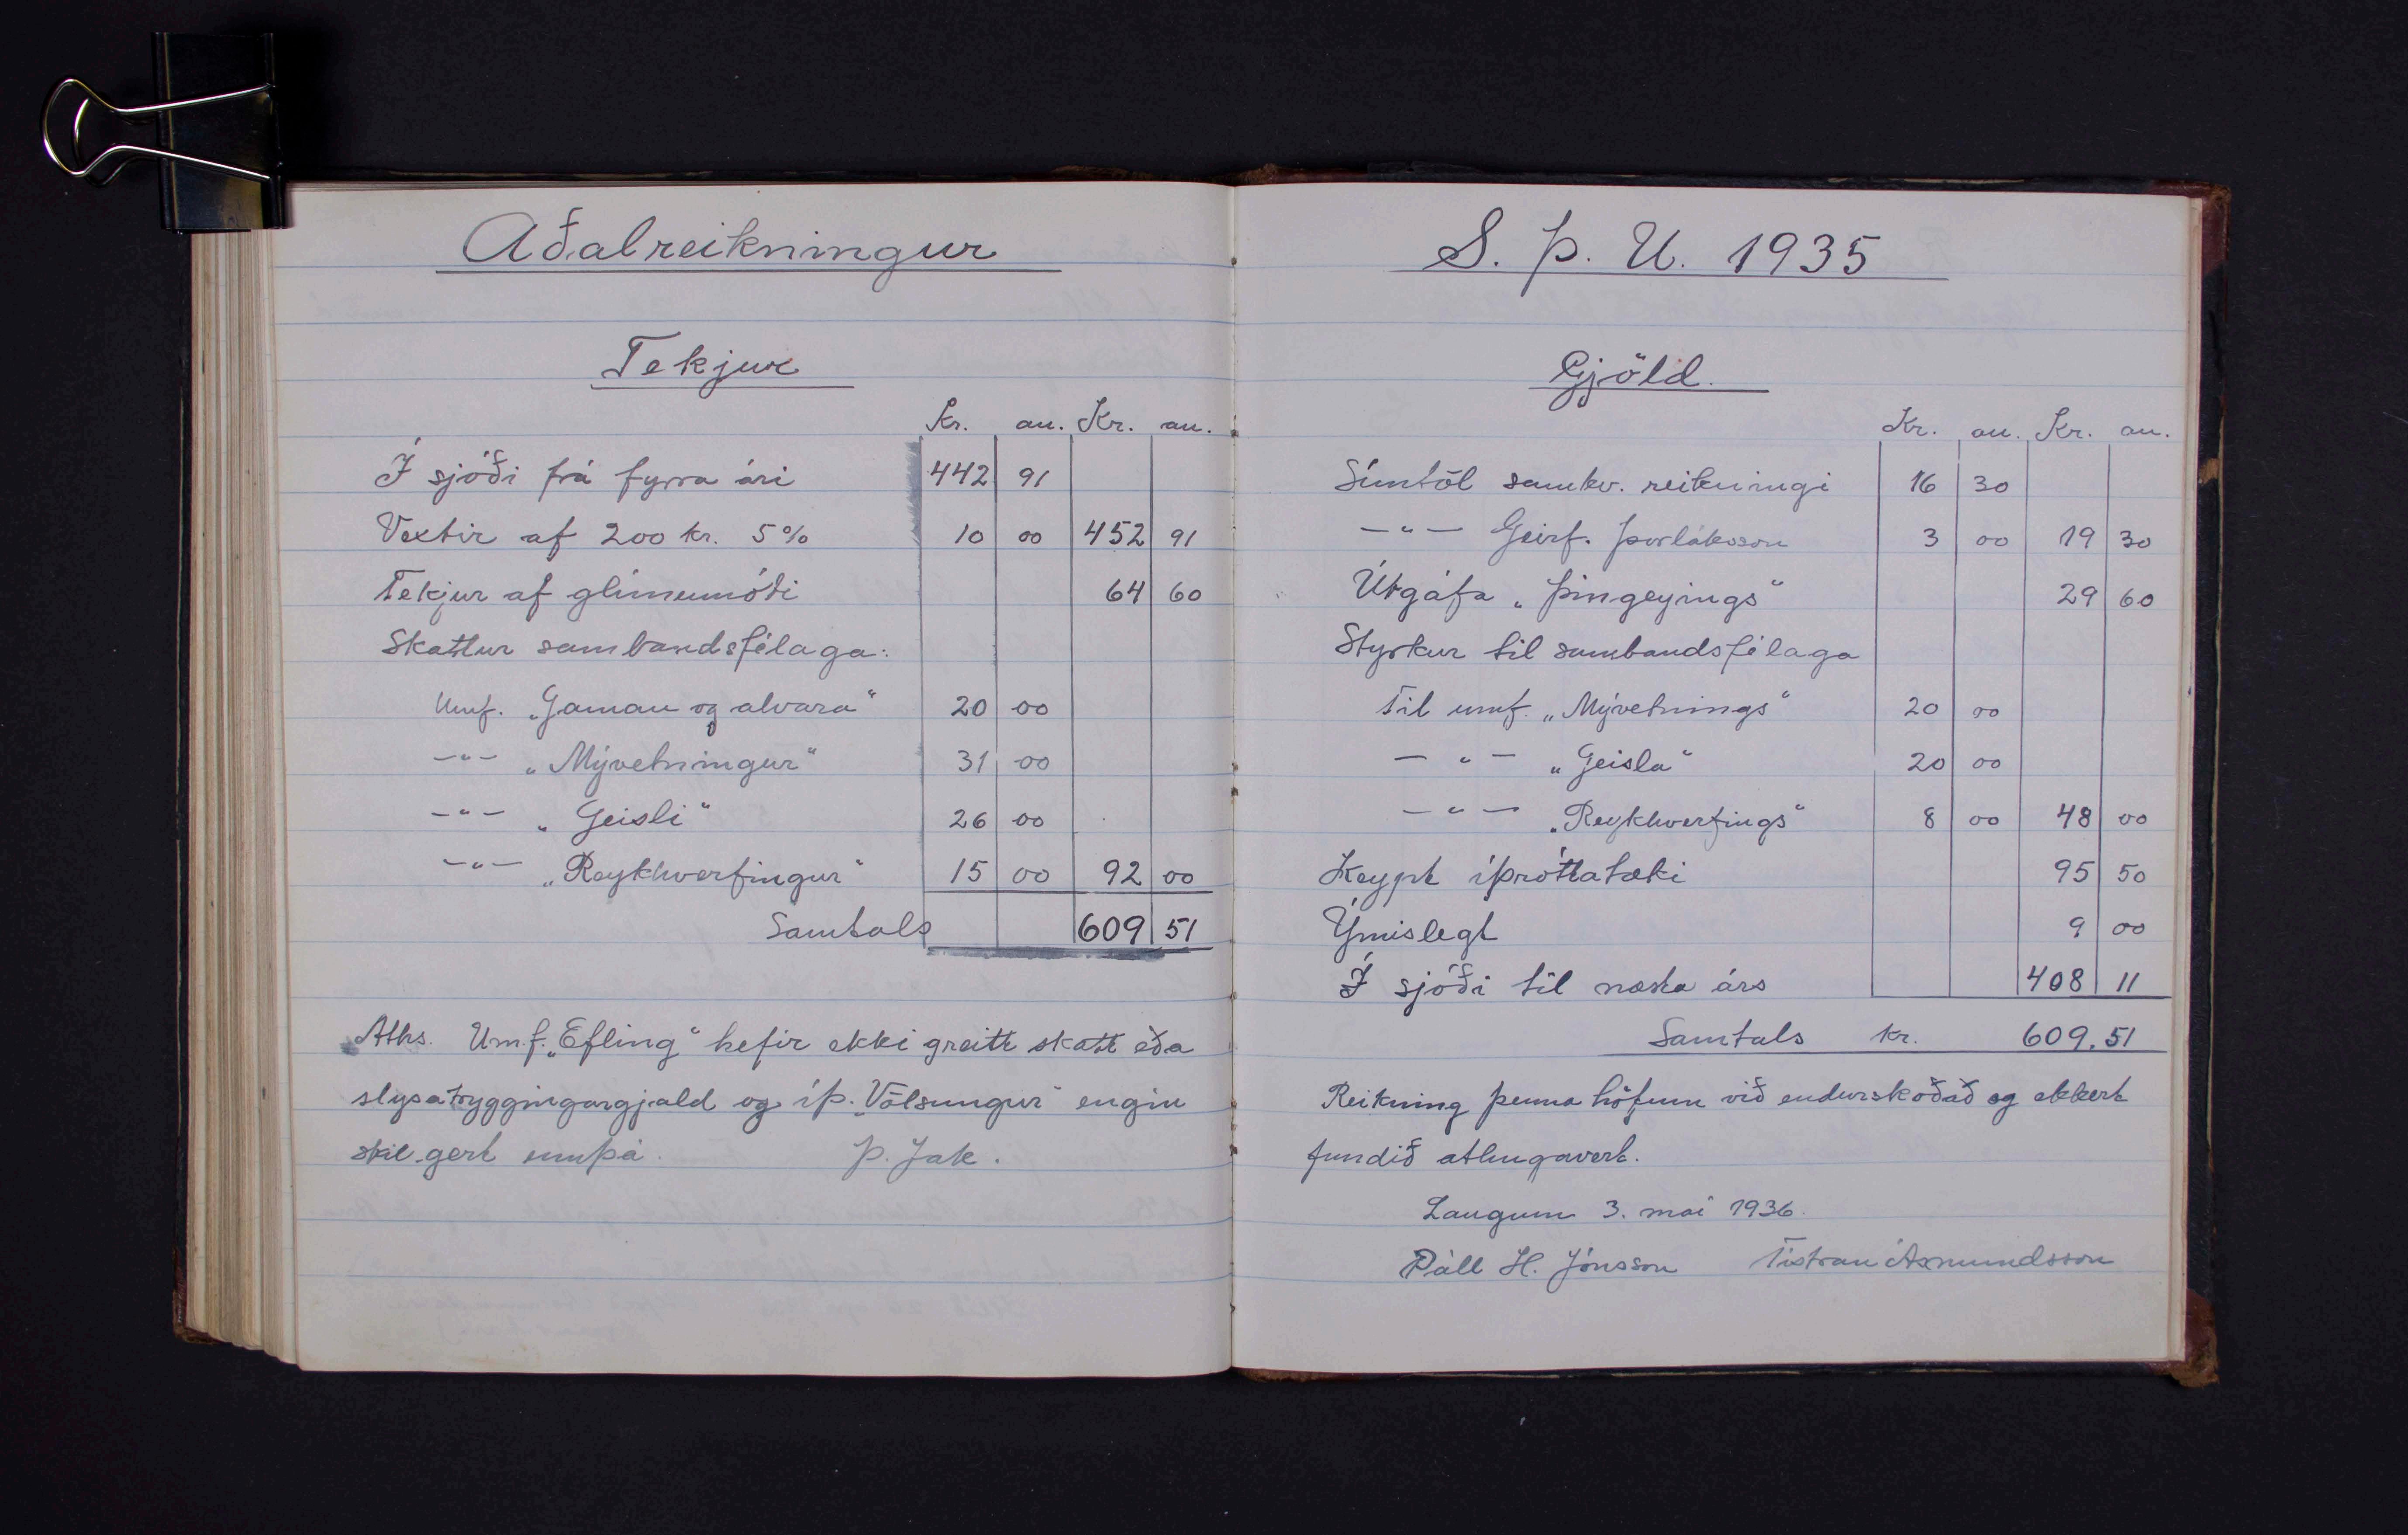 Aðalreikningur
Tekjur
Kr. au. Kr. au.
Í sjóði frá fyrra ári 442 91
Vextir af 200 kr. 5% 10 00 452 91
Tekjur af glímumóti 64 60
Skattur sambandsfélaga:
Umf. „Gaman og alvara“ 20 00
-"- „Mývetningur“ 31 00
-"- „Geisli“ 26 00
-"- „Reykhverfingur“ 15 00 92 00
Samtals 609 51
Aths. Umf. „Efling“ hefir ekki greitt skatt eða
slysatryggingargjald og íþ. „Völsungur“ engin
skil gert ennþá. Þ. Jak.
S. Þ. U. 1935
Gjöld.
Kr. au. Kr. au.
Símtöl samkv. reikningi 16 30
-"- Geirf. Þorláksson 3 00 19 30
Útgáfa „Þingeyings“ 29 60
Styrkur til sambandsfélaga
Til umf. „Mývetnings“ 20 00
-"- „Geisla“ 20 00
-"- „Reykhverfings“ 8 00 48 00
Keypt íþróttatæki 95 50
Ýmislegt 9 00
Í sjóði til næsta árs 408 11
Samtals kr. 609.51
Reikning þenna höfum við endurskoðað og ekkert
fundið athugavert.
Laugum 3. maí 1936.
Páll H. Jónsson Tistran Ásmundsson